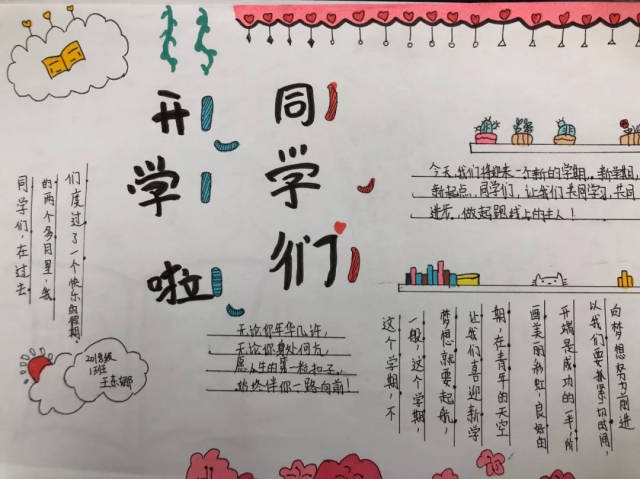 同学们
开学啦
同学们，在过去
的两个多月里，我
们度过了一个快乐的假期。
2018级
13班
无论你年华几许，
无论你身处何方，
愿人生的第一粒扣子，
始终伴你一路向前！
今天，我们将迎来一个新的学期，新学期，
新起点，同学们，让我们共同学习，共同
进步，做起跑线上的主人！
这个学期，不
一般，这个学期，
梦想就要起航，
让我们喜迎新学
期，在青年的天空
画美丽的彩虹，良好的
开端是成功的一半，所
以我们要抓紧一切时间，
向梦想努力前进